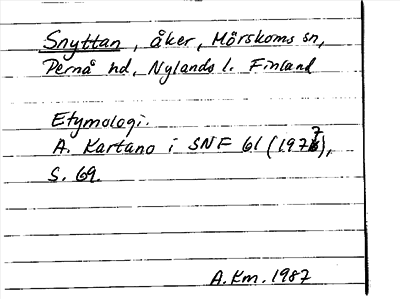 Snyttan, åker, Mörskoms sn,
Pernå hd, Nylands l. Finland
Etymologi.
A. Kartano i SNF 61 (1977),
S. 69.
A.Km. 1987